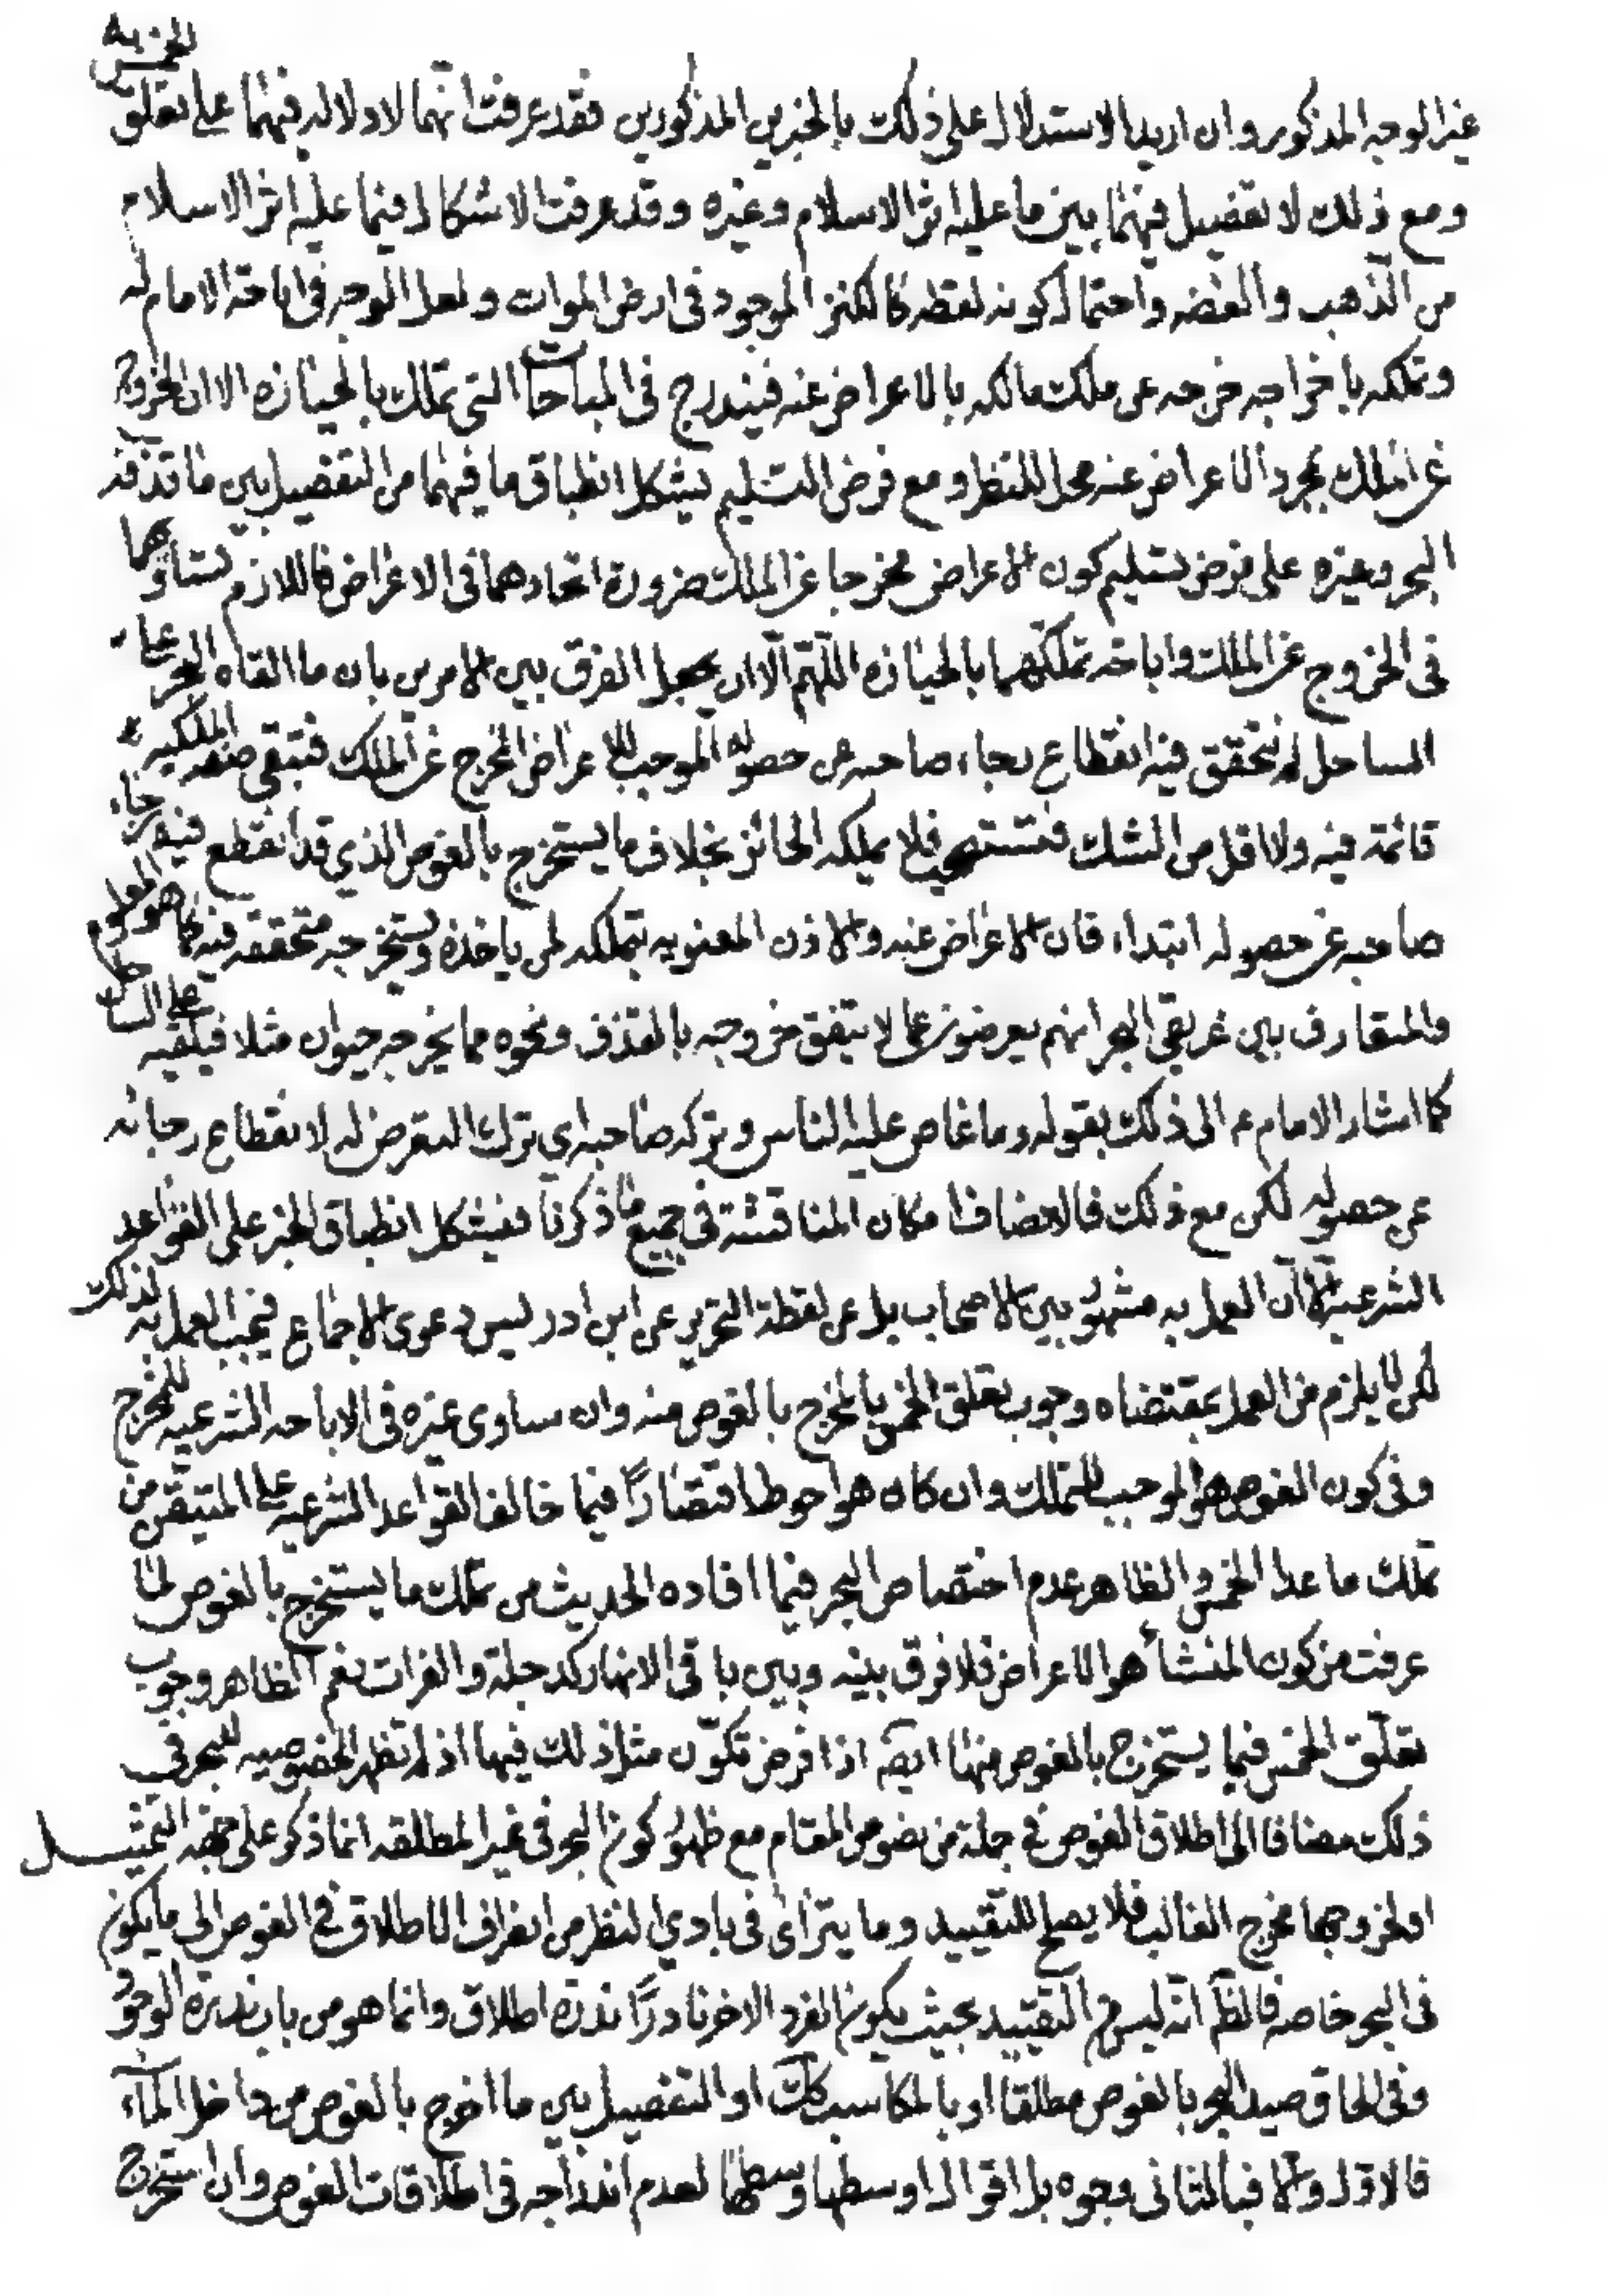 غير الوجه المذكور وان اريد الاستدلال على ذلك بالخبرين المذكورين فقد عرفت انهما لا دلالة فيهما على تعلق الخمس به
ومع ذلك لا تفصيل فيهما بين ما عليه اثر الاسلام وغيره وقد عرفت الاشكال فيما عليه اثر الاسلام
من الذهب والفضه واحتمال كونه لقطه كالكنز الموجود في ارض الموات ولعل الوجه في اباحة الامام له
وتملكه باخراجه خرجه عن ملك مالكه بالاعراض عنه فيندرج في المباحات التي تملك بالحيازه الا ان الخروج
عن الملك بمجرد الاعراض عنه محل للنظر ومع فرض التسليم يشكل انطباق ما فيهما من التفصيل بين ما قذفه
البحر وغيره على فرض تسليم كون الاعراض مخرجا عن الملك ضرورة اتحادهما في الاعراض فاللازم تساويهما
في الخروج عن الملك واباحة تملكهما بالحيازه اللهم الا ان يجعل الفرق بين الامرين بان ما القاه البحر على
الساحل لم يتحقق فيه انقطاع رجاء صاحبه عن حصوله الموجب للاعراض المخرج عن الملك فتبقى صفة الملكيه
قائمة فيه ولا اقل من الشك فتستصحب فلا يملكه الحائز بخلاف ما يستخرج بالغوص الذي قد انقطع فيه رجاء
صاحبه عن حصوله ابتداء فان الاعراض عنه والاذن المعنويه بتملكه لمن ياخذه ويستخرجه متحققه فيه كما هو المعلوم
والمتعارف بين غريقي البحر انهم يعرضون عما لا يتفق خروجه بالقذف ونحوه مما يخرجه حيوان مثلا فيلقيه على الساحل
كما اشار الامام ع الى ذلك بقوله وما غاص عليه الناس وتركه صاحبه اي ترك التعرض له لانقطاع رجائه
عن حصوله لكن مع ذلك فالانصاف امكان المناقشة في جميع ما ذكرنا فيشكل انطباق الخبر على القواعد
الشرعيه الا ان العمل به مشهور بين الاصحاب بل عن لقطة التحرير عن ابن ادريس دعوى الاجماع فيجب العمل به لذلك
لكن لا يلزم من العمل بمقتضاه وجوب تعلق الخمس بالمخرج بالغوص منه وان ساوى غيره في الاباحه الشرعيه للمخرج
وفي كون الغوص هو الموجب للتملك وان كان هو احوط اقتصارًا فيما خالف القواعد الشرعيه على المتيقن من
تملك ما عدا الخمس والظاهر عدم اختصاص البحر فيما افاده الحديث من تملك ما يستخرج بالغوص لما
عرفت من كون المنشأ هو الاعراض فلا فرق بينه وبين باقي الانهار كدجلة والفرات نعم الظاهر وجوب
تعلّق الخمس فيما يستخرج بالغوص منها ايضه اذا فرض تكوّن مثل ذلك فيها اذ لم تظهر الخصوصيه للبحر في
ذلك مضافا الى اطلاق الغوص في جملة من نصوص المقام مع ظهور كون البحر في غير المطلقه انما ذكر على جهة التمثيل
او لخروجها مخرج الغالب فلا يصلح للتقييد وما يتراءى في بادي النظر من انصراف الاطلاق في الغوص الى ما يكون
في البحر خاصه فالظ انه ليس في التقييد بحيث يكون الفرد الاخر نادرًا ندرة اطلاق وانما هو من باب ندرة الوجود
وفي الحاق صيد البحر بالغوص مطلقا او بالمكاسب كك او التفصيل بين ما اخرج بالغوص من داخل الماء
فالاول والا فبالثاني وجوه بل اقوال اوسطها وسطها لعدم اندراجه في اطلاقات الغوص وان استخرج